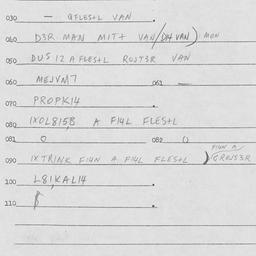 030 — GFLESTL VAN .
040 D3R MAN MIT+ VAN/(DH VAN) MON
050 DUS 12 A FLES+L ROJT3R VAN
060 MEJVM7 061 —
070 PROPK14 .
080 IXOL815,B A FI4L FLES+L
081 0 082 0
FI4N A
090 IXTRINK FI4N A FI4L FLES+L )GROJS3R
100 L81,KAL14 .
110 .